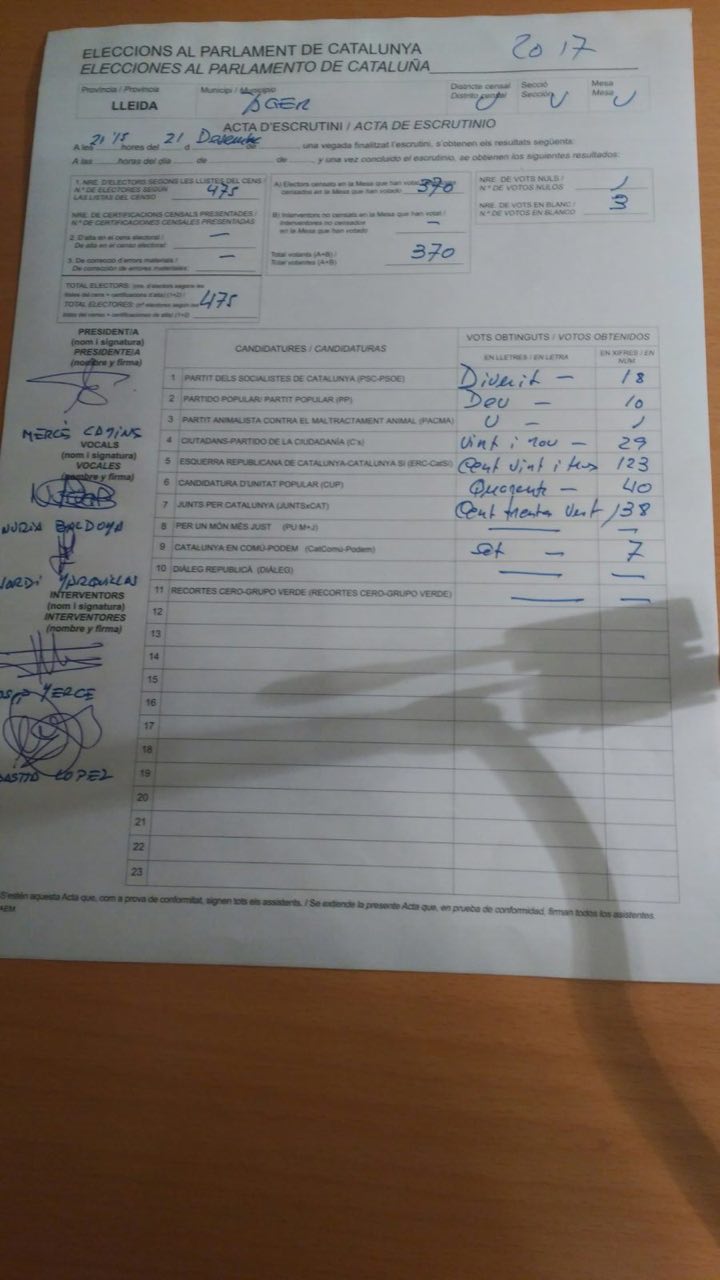 ELECCIONS AL PARLAMENT DE CATALUNYA 2017
ELECCIONES AL PARLAMENTO DE CATALUÑA
Província / Provincia
LLEIDA
Municipi / Municipio
AGER
Districte censal
Distrito censal
U
Secció
Sección
U
Mesa
Mesa
U
ACTA D'ESCRUTINI / ACTA DE ESCRUTINIO
A les 21'15 hores del 21 d Desembre de una vegada finalitzat l'escrutini, s'obtenen els resultats següents:
A las horas del día de de y una vez concluido el escrutinio, se obtienen los siguientes resultados:
1. NRE. D'ELECTORS SEGONS LES LLISTES DEL CENS /
N.º DE ELECTORES SEGÚN
LAS LISTAS DEL CENSO
475
NRE. DE CERTIFICACIONS CENSALS PRESENTADES /
N.º DE CERTIFICACIONES CENSALES PRESENTADAS
2. D'alta en el cens electoral /
De alta en el censo electoral:
—
3. De correcció d'errors materials /
De corrección de errores materiales:
—
TOTAL ELECTORS: (nre. d'electors segons les
llistes del cens + certificacions d'alta) (1+2) /
TOTAL ELECTORES: (nº electores según las
listas del censo + certificaciones de alta) (1+2)
475
A) Electors censats en la Mesa que han votat /
censados en la Mesa que han votado
370
B) Interventors no censats en la Mesa que han votat /
Interventores no censados
en la Mesa que han votado
—
Total votants (A+B) /
Total votantes (A+B)
370
NRE. DE VOTS NULS /
N.º DE VOTOS NULOS
1
NRE. DE VOTS EN BLANC /
N.º DE VOTOS EN BLANCO
3
PRESIDENT/A
(nom i signatura)
PRESIDENTE/A
(nombre y firma)
MERCÈ
VOCALS
(nom i signatura)
VOCALES
(nombre y firma)
NURIA BALDOYA
JORDI
INTERVENTORS
(nom i signatura)
INTERVENTORES
(nombre y firma)
LOPEZ
CANDIDATURES / CANDIDATURAS
VOTS OBTINGUTS / VOTOS OBTENIDOS
EN LLETRES / EN LETRA
EN XIFRES / EN NÚM
1 PARTIT DELS SOCIALISTES DE CATALUNYA (PSC-PSOE) Divuit — 18
2 PARTIDO POPULAR/ PARTIT POPULAR (PP) Deu — 10
3 PARTIT ANIMALISTA CONTRA EL MALTRACTAMENT ANIMAL (PACMA) U — 1
4 CIUTADANS-PARTIDO DE LA CIUDADANÍA (C's) Vint i nou — 29
5 ESQUERRA REPUBLICANA DE CATALUNYA-CATALUNYA SÍ (ERC-CatSí) Cent vint i tres 123
6 CANDIDATURA D'UNITAT POPULAR (CUP) Quaranta — 40
7 JUNTS PER CATALUNYA (JUNTSxCAT) Cent trenta vuit 138
8 PER UN MÓN MÉS JUST (PUM+J) — —
9 CATALUNYA EN COMÚ-PODEM (CatComú-Podem) Set — 7
10 DIÀLEG REPUBLICÀ (DIÀLEG) — —
11 RECORTES CERO-GRUPO VERDE (RECORTES CERO-GRUPO VERDE) — —
12
13
14
15
16
17
18
19
20
21
22
23
S'estén aquesta Acta que, com a prova de conformitat, signen tots els assistents. / Se extiende la presente Acta que, en prueba de conformidad, firman todos los asistentes.
AEM